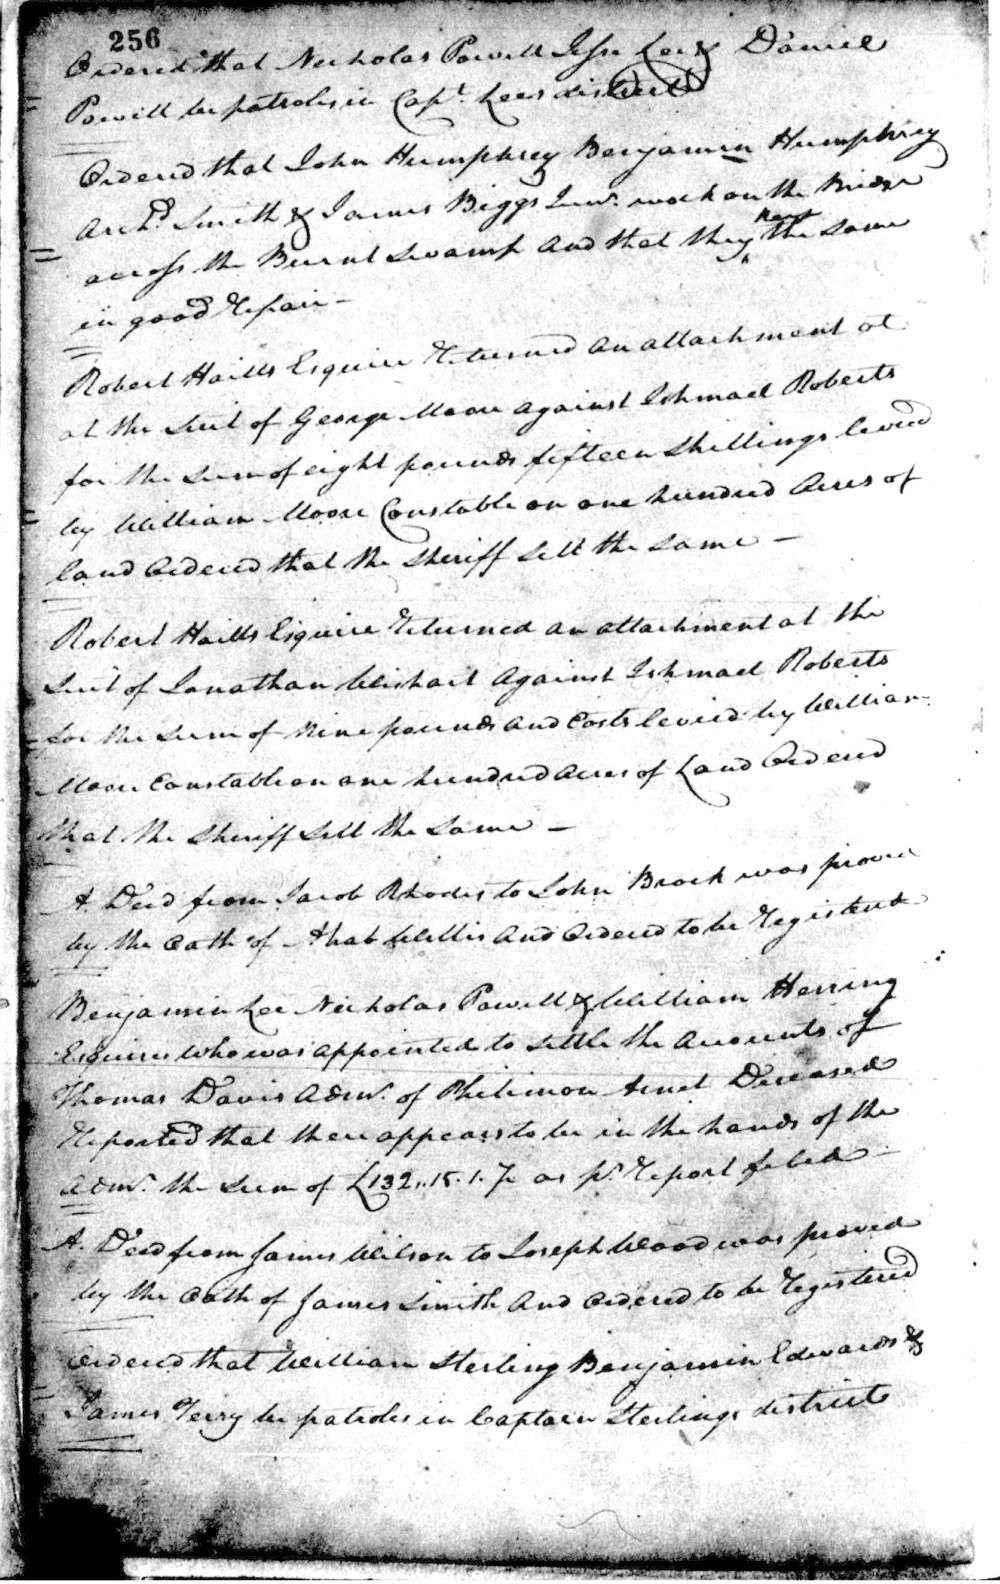 256
Ordered that Nicholas Powell Jesse Lee & Daniel
Powell be patrolers in Capt. Lees district
Ordered that John Humphrey Benjamin Humphrey
Archd. Smith & James Biggs Junr. work on the Bridge
across the Burnt Swamp And that they keep the Same
in good Repair —
Robert Hails Esquire Returned an attachment at
at the Suit of George Moore against Ishmael Roberts
for the Sum of eight pounds fifteen Shillings levied
by William Moore Constable on one hundred Acres of
land Ordered that the Sheriff Sell the Same —
Robert Hails Esquire Returned an attachment at the
Suit of Jonathan Wishart Against Ishmael Roberts
for the Sum of Nine pounds And Costs levied by William
Moore Constable on one hundred Acres of Land Ordered
that the Sheriff Sell the Same —
A Deed from Jacob Rhodes to John Brock was proved
by the Oath of Ahab Willis And Ordered to be Registered
Benjamin Lee Nicholas Powell & William Herring
Esquires who was appointed to Settle the Accounts of
Thomas Davis Admr. of Philimon Deceased
Reported that there appears to be in the hands of the
Admr. the Sum of £132..15.1. as pr. Report filed —
A Deed from James Wilson to Joseph Wood was proved
by the Oath of James Smith And Ordered to be Registered
Ordered that William Sterling Benjamin Edwards &
James Terry be patroles in Captain Sterlings district